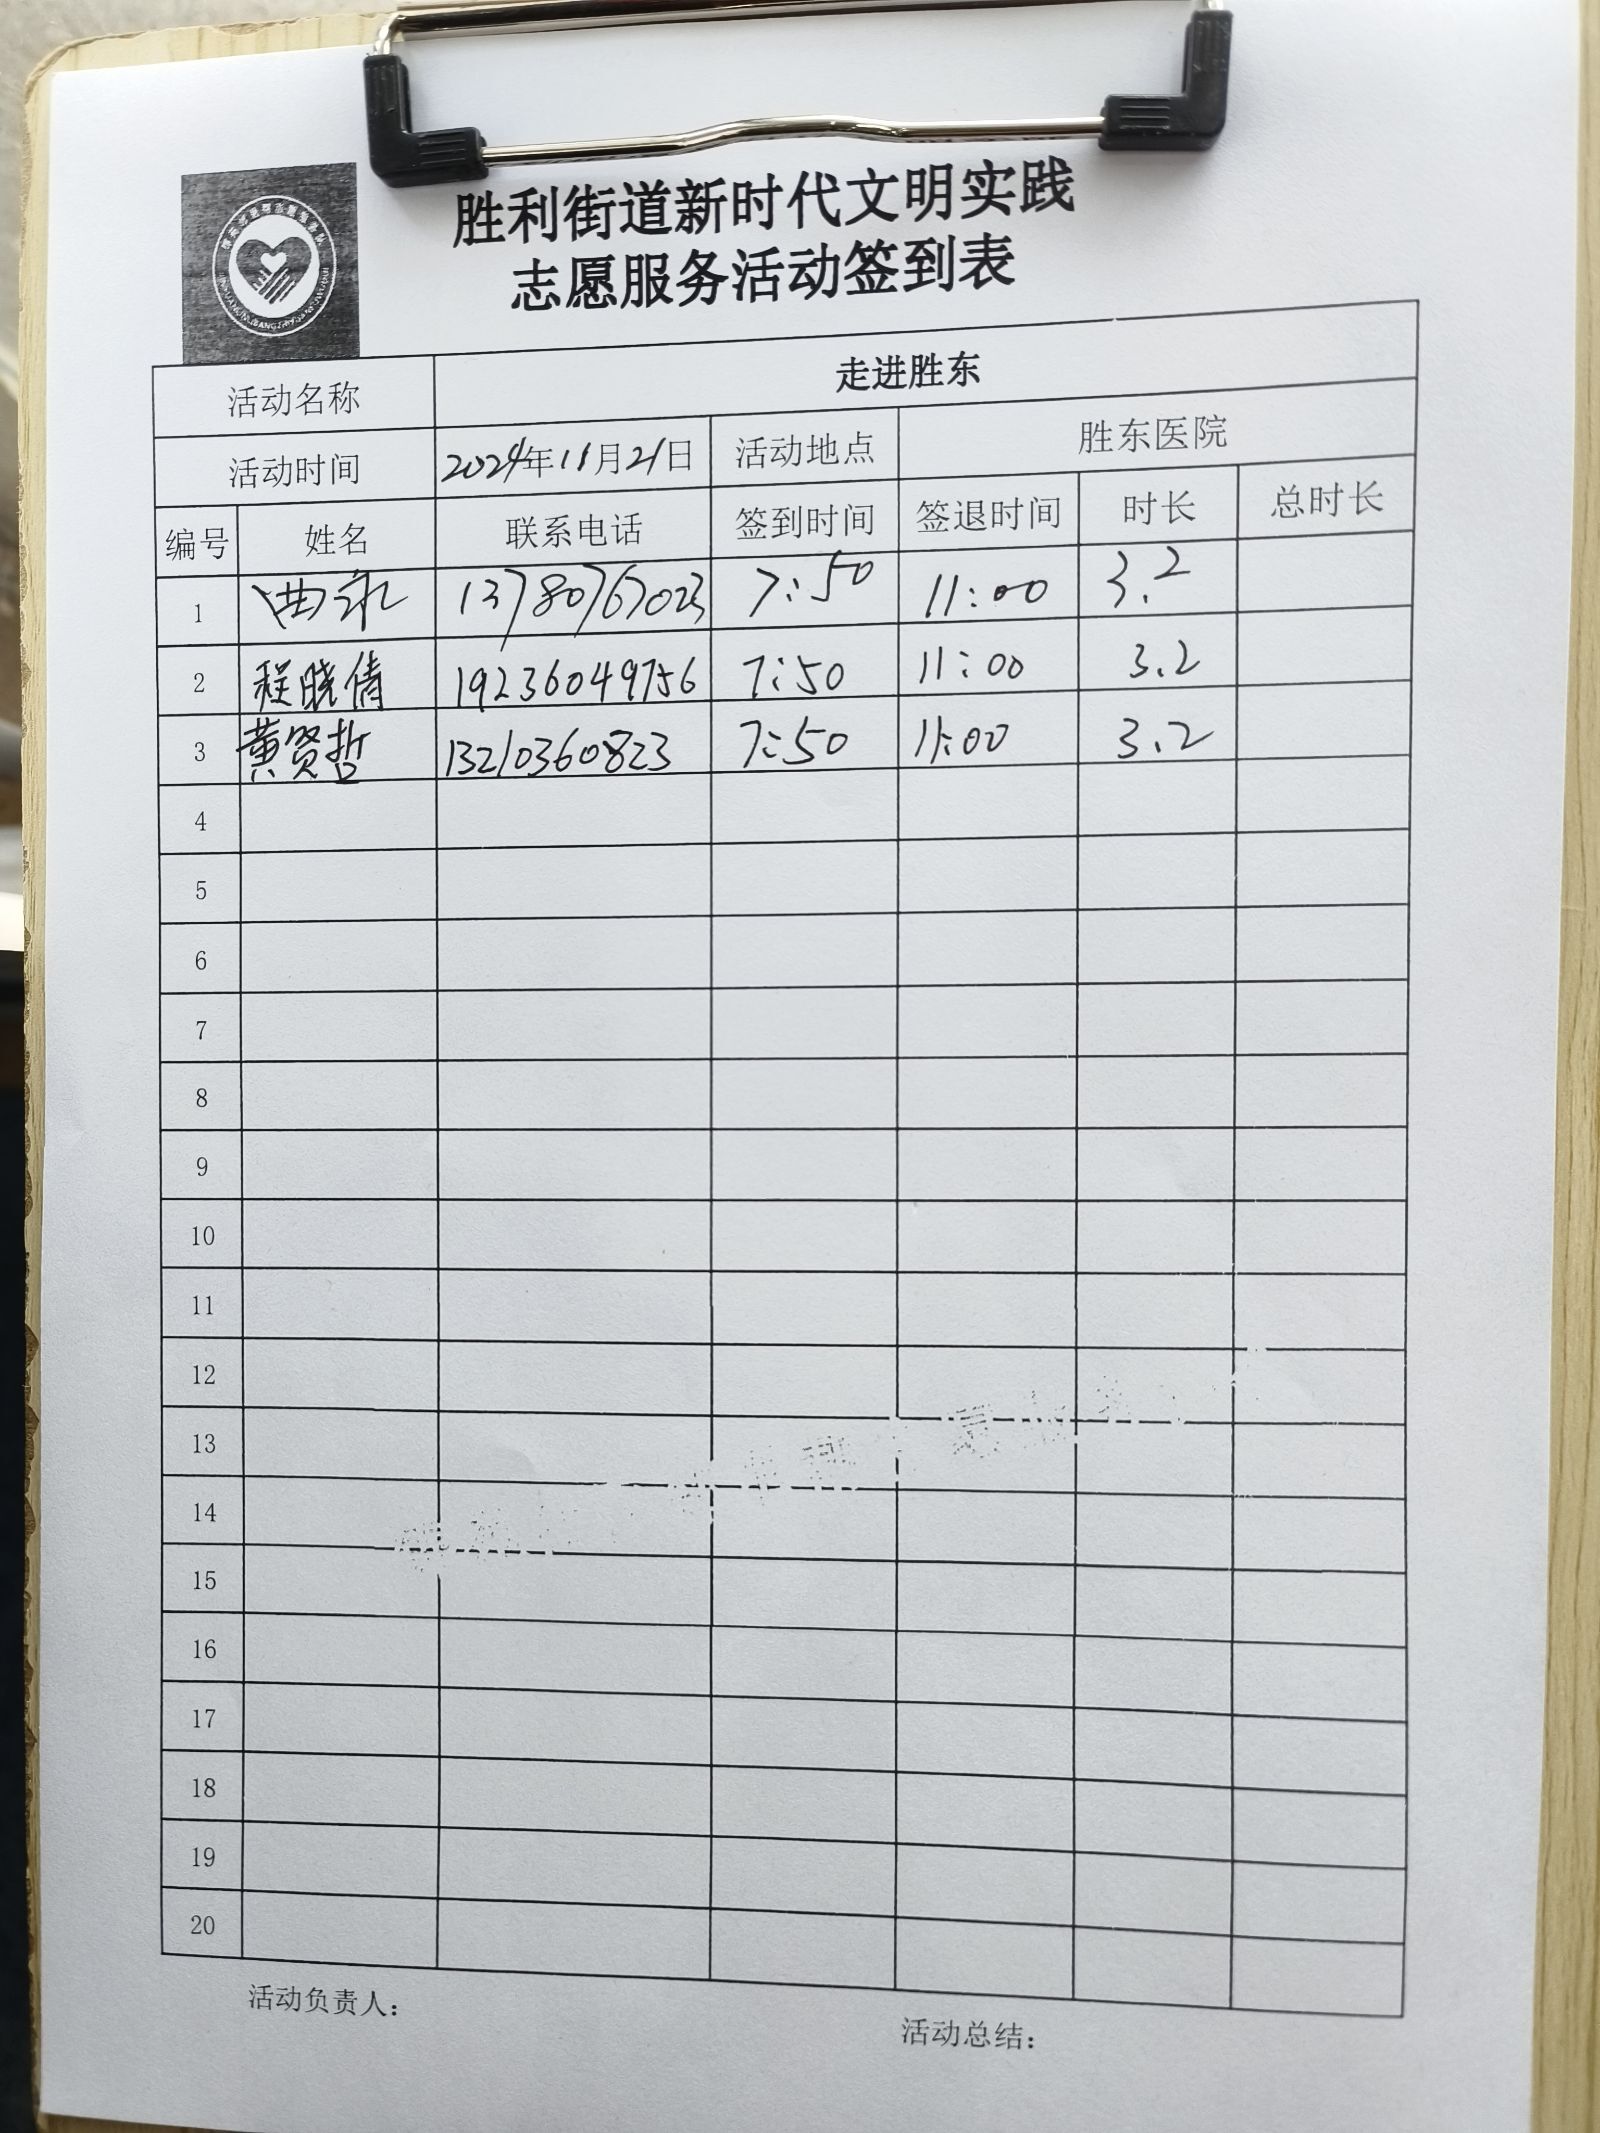 胜利街道新时代文明实践
志愿服务活动签到表
活动名称 走进胜东
活动时间 2024年11月21日 活动地点 胜东医院
编号 姓名 联系电话 签到时间 签退时间 时长 总时长
1 13780767023 7:50 11:00 3.2
2 程晓倩 19236049756 7:50 11:00 3.2
3 黄贤哲 13210360823 7:50 11:00 3.2
4
5
6
7
8
9
10
11
12
13
14
15
16
17
18
19
20
活动负责人： 活动总结：